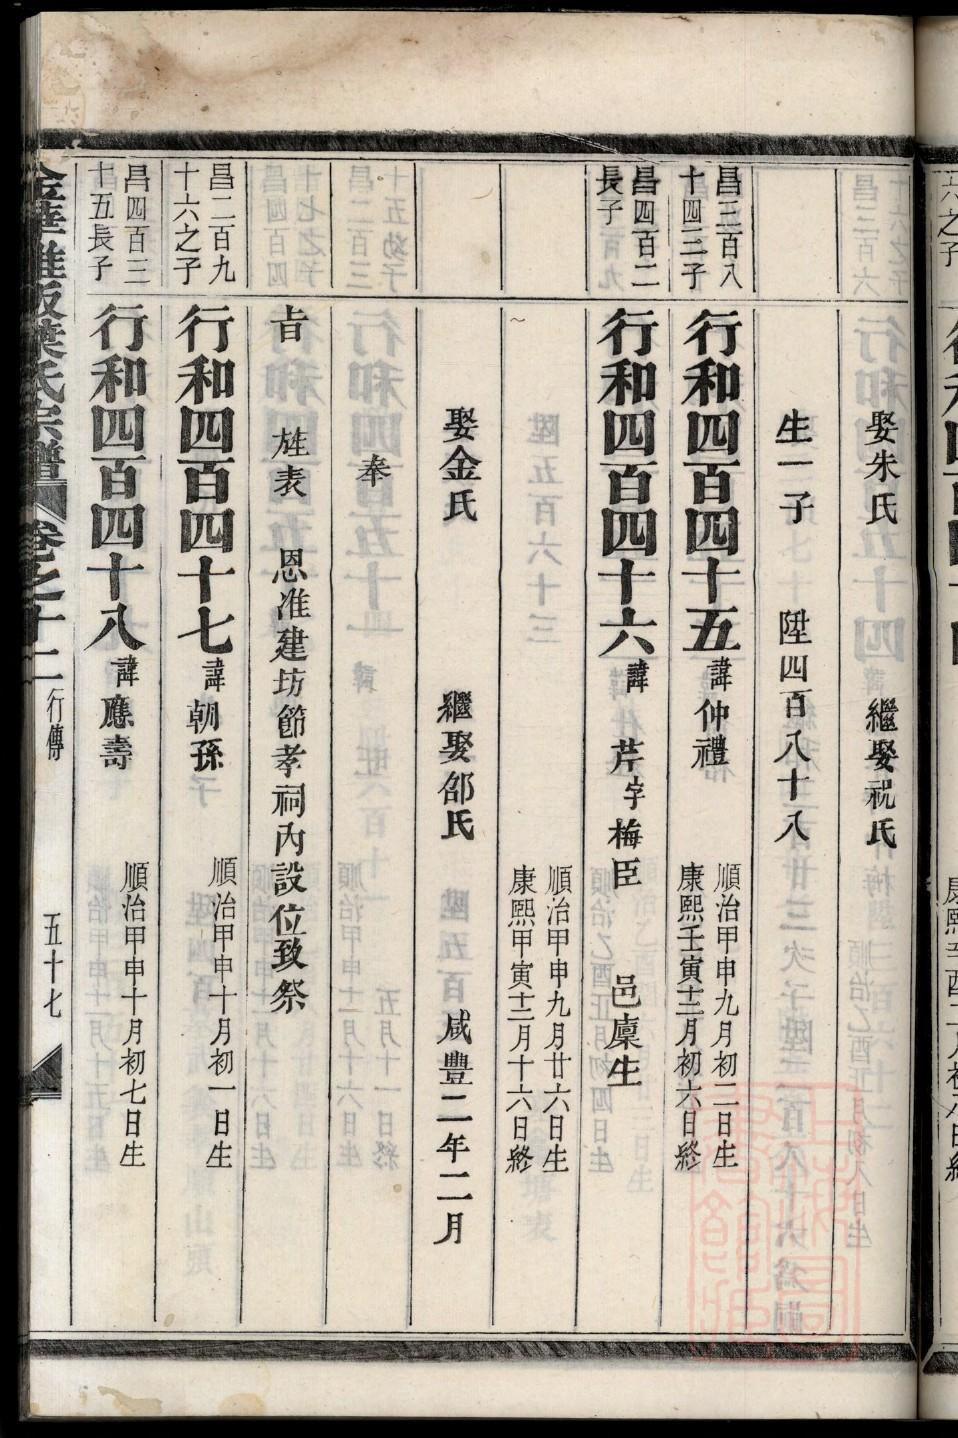 娶朱氏　繼娶祝氏
生一子　陞四百八十八
昌三百八
十四二子
行和四百四十五　諱仲禮
順治甲申九月初二日生
康熙壬寅十二月初六日終
昌四百二
長子
行和四百四十六　諱芹字梅臣　邑廩生
順治甲申九月廿六日生
康熙甲寅十二月十六日終
娶金氏　繼娶邵氏　咸豐二年二月
奉
旨　旌表　恩准建坊節孝祠內設位致祭
昌二百九
十六之子
行和四百四十七　諱朝孫
順治甲申十月初一日生
昌四百三
十五長子
行和四百四十八　諱應壽
順治甲申十月初七日生
葉氏宗譜　卷之十二　行傳　五十七